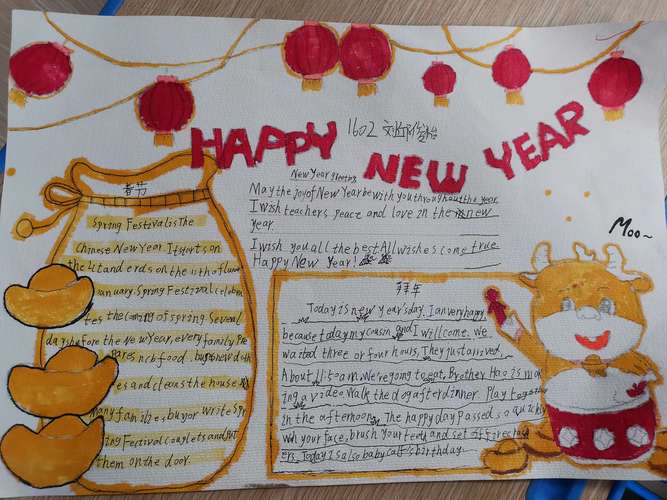 HAPPY NEW YEAR
1602
New Year greeting
May the joy of New Year be with you throughout the year
I wish teachers peace and love in the new
year.
I wish you all the best All wishes come true
Happy New year!
春节
Spring Festival is The
Chinese New Year. It starts on
the 1st and ends on the 11th of lunar
January. Spring Festival celebra
tes the coming of spring. Several
days before the New Year, every family Pre
pares rich food. buys new cloth
es and cleans the house.
Many families, buy or write Spr
ing Festival couplets and put
them on the door.
拜年
Today is new year's day. I am very happy
because today my cousin and I will come. We
waited three or four hours. They just arrived.
About 11:50 am. We're going to eat. Brother Hao is mak
ing a video. Walk the dog after dinner. Play together
in the afternoon. The happy day passed so quickly
wash your face, brush your teeth and set off firecrack
ers. Today is also baby calf's birthday.
Moo~